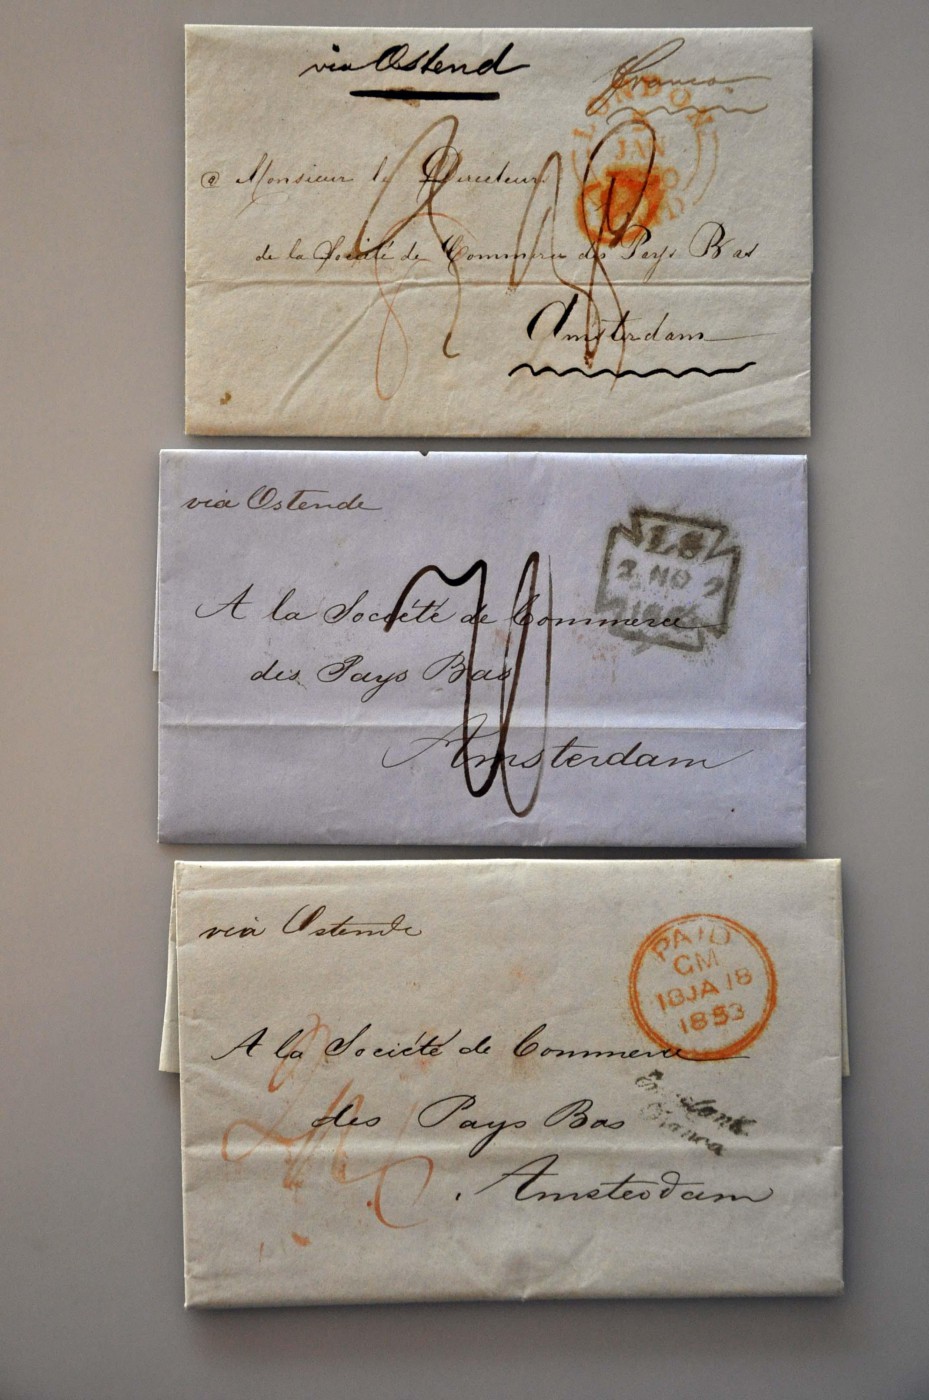 via Ostend
Franco
LONDON
JAN
Monsieur le Directeur
de la Société de Commerce des Pays Bas
Amsterdam
via Ostende
LS
2 NO 2
A la Société de Commerce
des Pays Bas
Amsterdam
via Ostende
PAID
GM
18 JA 18
1853
A la Société de Commerce
des Pays Bas
Franca
Amsterdam